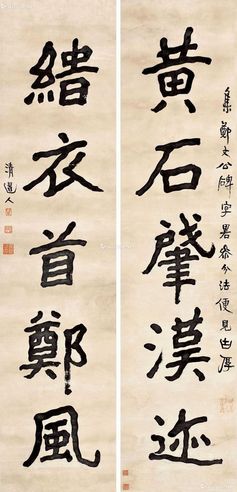 集鄭文公碑字畧參分法便見古厚
黃石肇漢迹
緇衣首鄭風
清道人